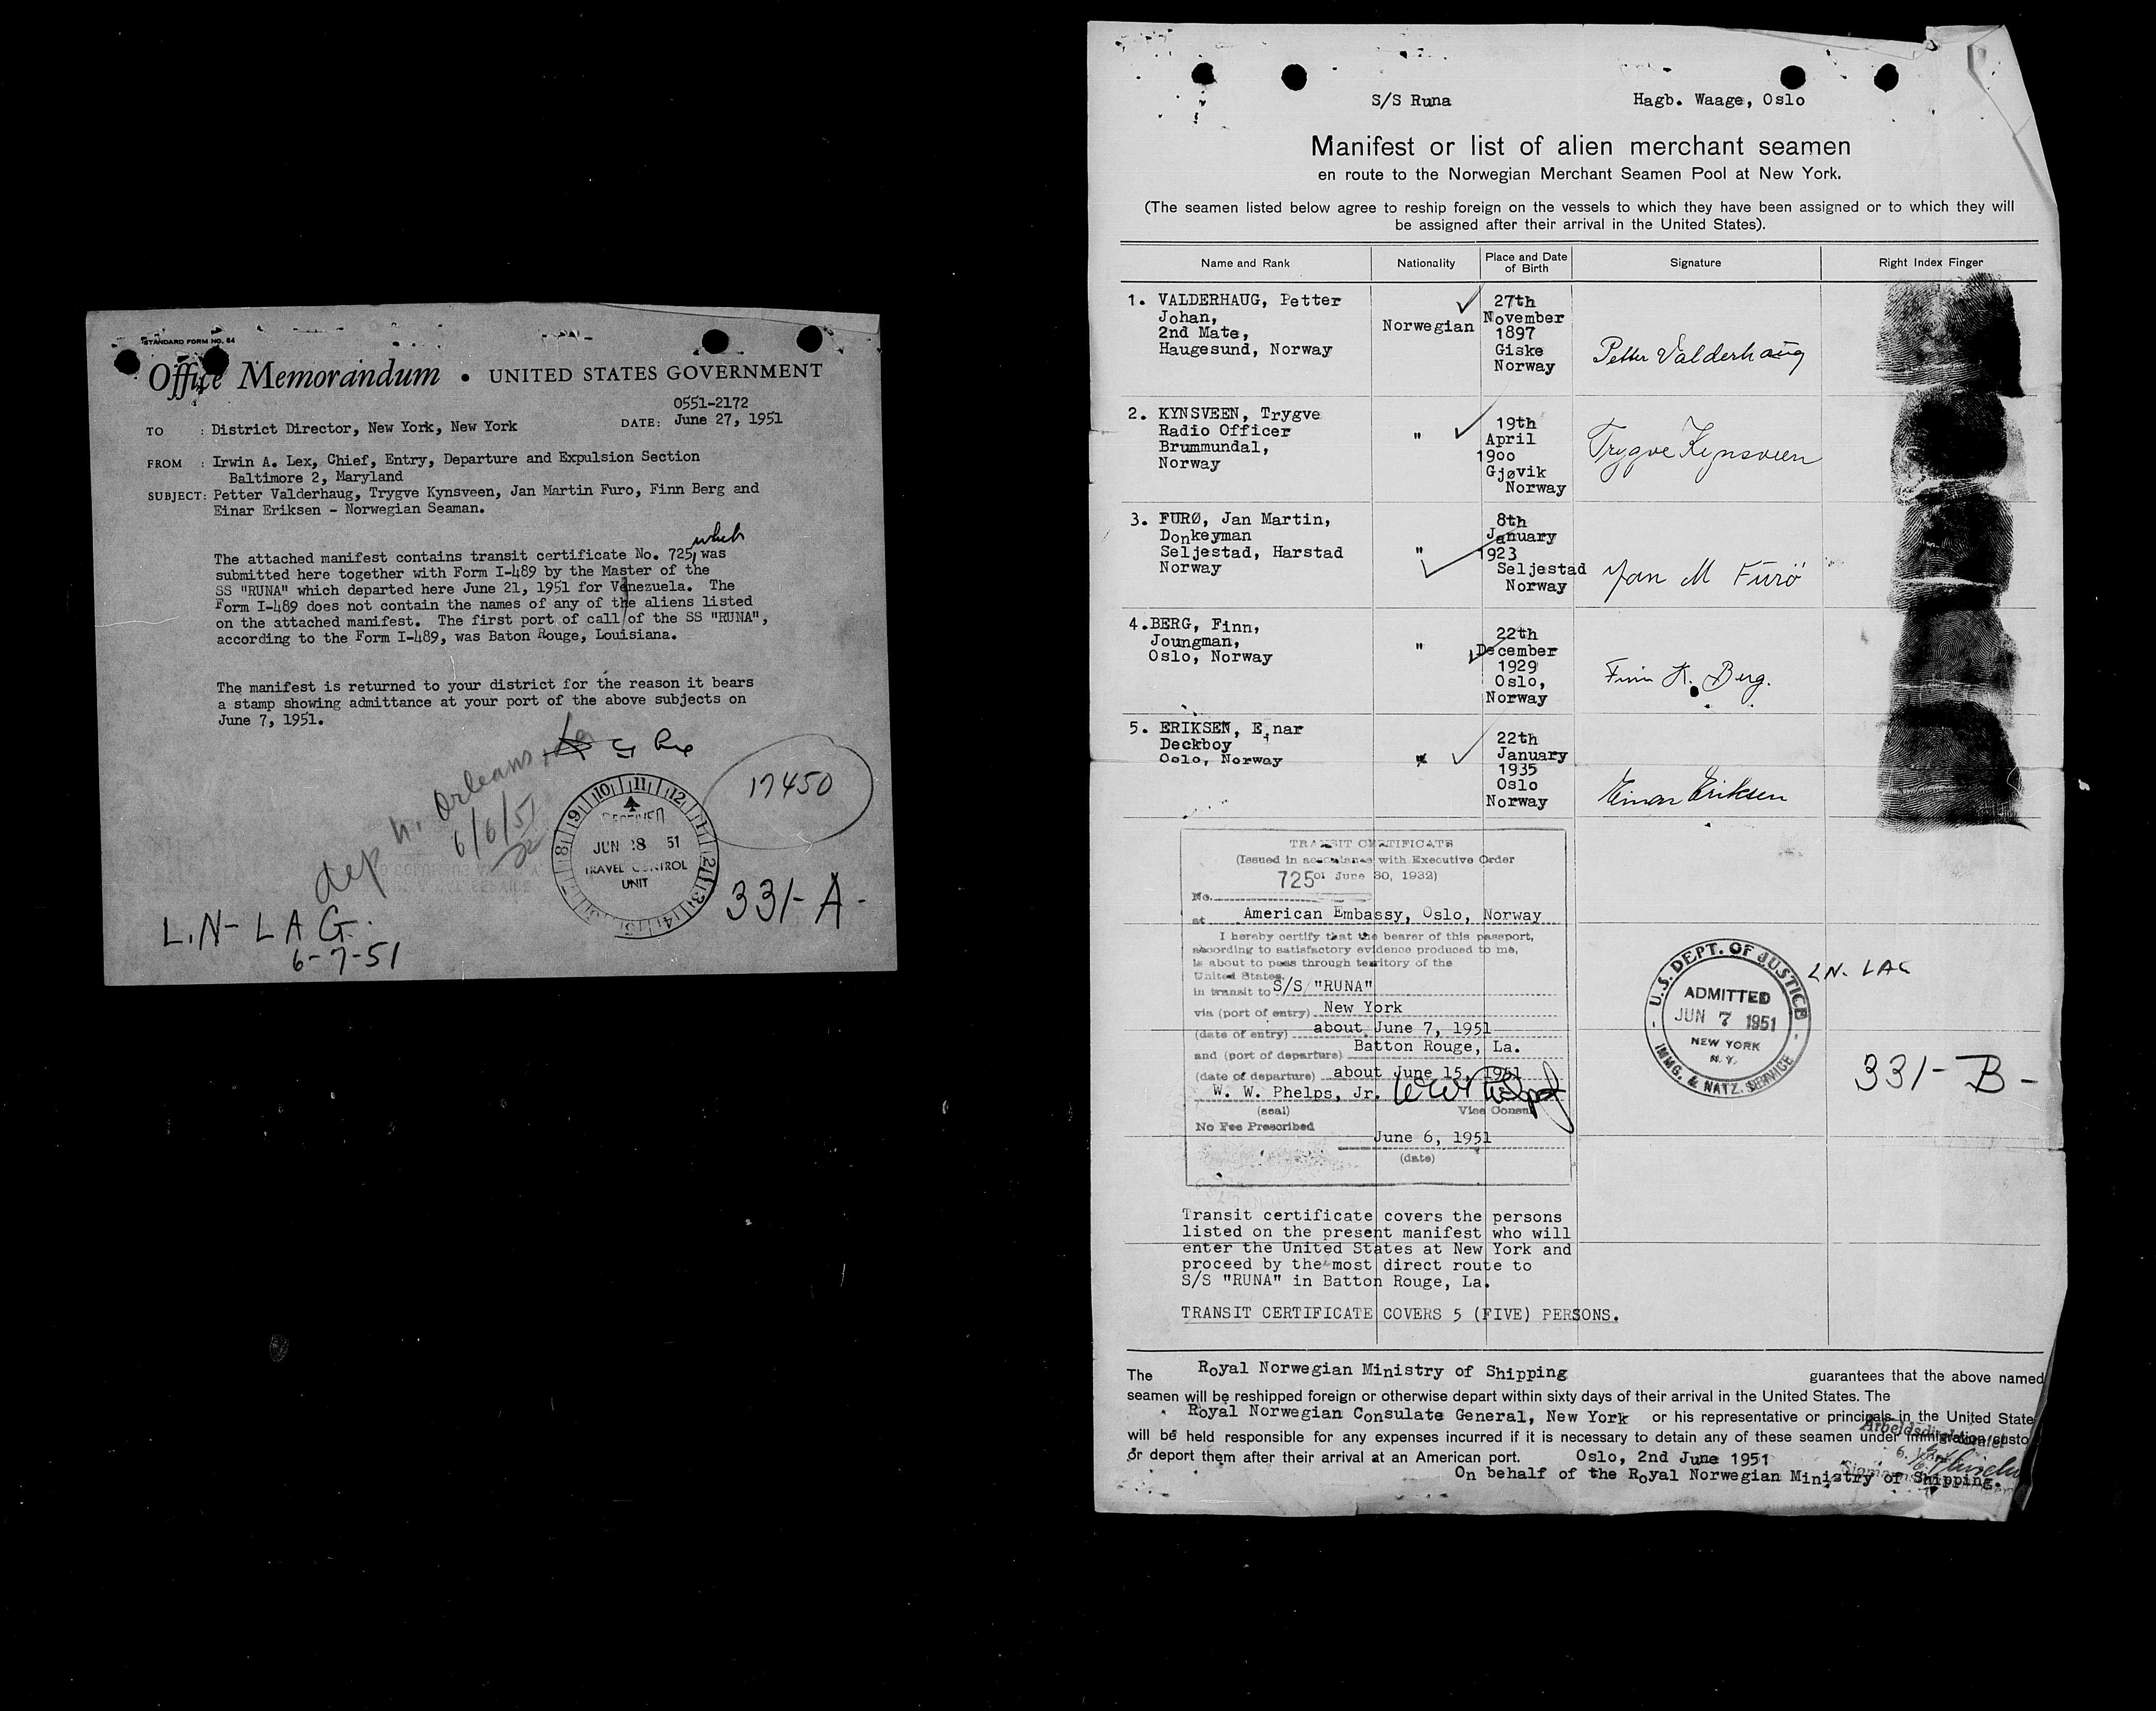 STANDARD FORM NO. 64
Office Memorandum • UNITED STATES GOVERNMENT
0551-2172
TO : District Director, New York, New York DATE: June 27, 1951
FROM : Irwin A. Lex, Chief, Entry, Departure and Expulsion Section
Baltimore 2, Maryland
SUBJECT: Petter Valderhaug, Trygve Kynsveen, Jan Martin Furo, Finn Berg and
Einar Eriksen - Norwegian Seaman.
which
The attached manifest contains transit certificate No. 725, was
submitted here together with Form I-489 by the Master of the
SS "RUNA" which departed here June 21, 1951 for Venezuela. The
Form I-489 does not contain the names of any of the aliens listed
on the attached manifest. The first port of call of the SS "RUNA",
according to the Form I-489, was Baton Rouge, Louisiana.
The manifest is returned to your district for the reason it bears
a stamp showing admittance at your port of the above subjects on
June 7, 1951.
dep n. Orleans, La
6/6/51
17450
9 10 11 12 1
8 2
RECEIVED
JUN 28 51
TRAVEL CONTROL
UNIT
331-A-
L.N- LAG.
6-7-51
S/S Runa Hagb. Waage, Oslo
Manifest or list of alien merchant seamen
en route to the Norwegian Merchant Seamen Pool at New York.
(The seamen listed below agree to reship foreign on the vessels to which they have been assigned or to which they will
be assigned after their arrival in the United States).
Name and Rank Nationality Place and Date of Birth Signature Right Index Finger
1. VALDERHAUG, Petter
Johan,
2nd Mate,
Haugesund, Norway
Norwegian
27th
November
1897
Giske
Norway
Petter Valderhaug
2. KYNSVEEN, Trygve
Radio Officer
Brummundal,
Norway
"
19th
April
1900
Gjøvik
Norway
Trygve Kynsveen
3. FURØ, Jan Martin,
Donkeyman
Seljestad, Harstad
Norway
"
8th
January
1923
Seljestad
Norway
Jan M Furö
4.BERG, Finn,
Joungman,
Oslo, Norway
"
22th
December
1929
Oslo,
Norway
Finn K. Berg.
5. ERIKSEN, Einar
Deckboy
Oslo, Norway
"
22th
January
1935
Oslo
Norway
Einar Eriksen
TRANSIT CERTIFICATE
(Issued in accordance with Executive Order
of June 30, 1932)
No. 725
at American Embassy, Oslo, Norway
I hereby certify that the bearer of this passport,
according to satisfactory evidence produced to me,
is about to pass through territory of the
United States,
in transit to S/S "RUNA"
via (port of entry) New York
(date of entry) about June 7, 1951
and (port of departure) Batton Rouge, La.
(date of departure) about June 15, 1951
W. W. Phelps, Jr. WW Phelps Jr
(seal) Vice Consul
No Fee Prescribed
June 6, 1951
(date)
U.S. DEPT. OF JUSTICE
ADMITTED
JUN 7 1951
NEW YORK
N. Y.
IMMG. & NATZ. SERVICE
LN- LAG
331-B-
Transit certificate covers the persons
listed on the present manifest who will
enter the United States at New York and
proceed by the most direct route to
S/S "RUNA" in Batton Rouge, La.
TRANSIT CERTIFICATE COVERS 5 (FIVE) PERSONS.
The Royal Norwegian Ministry of Shipping guarantees that the above named
seamen will be reshipped foreign or otherwise depart within sixty days of their arrival in the United States. The
Royal Norwegian Consulate General, New York or his representative or principals in the United State
will be held responsible for any expenses incurred if it is necessary to detain any of these seamen under immigration custo
or deport them after their arrival at an American port. Oslo, 2nd June 1951
On behalf of the Royal Norwegian Ministry of Shipping.
Arbeidsdirektoratet